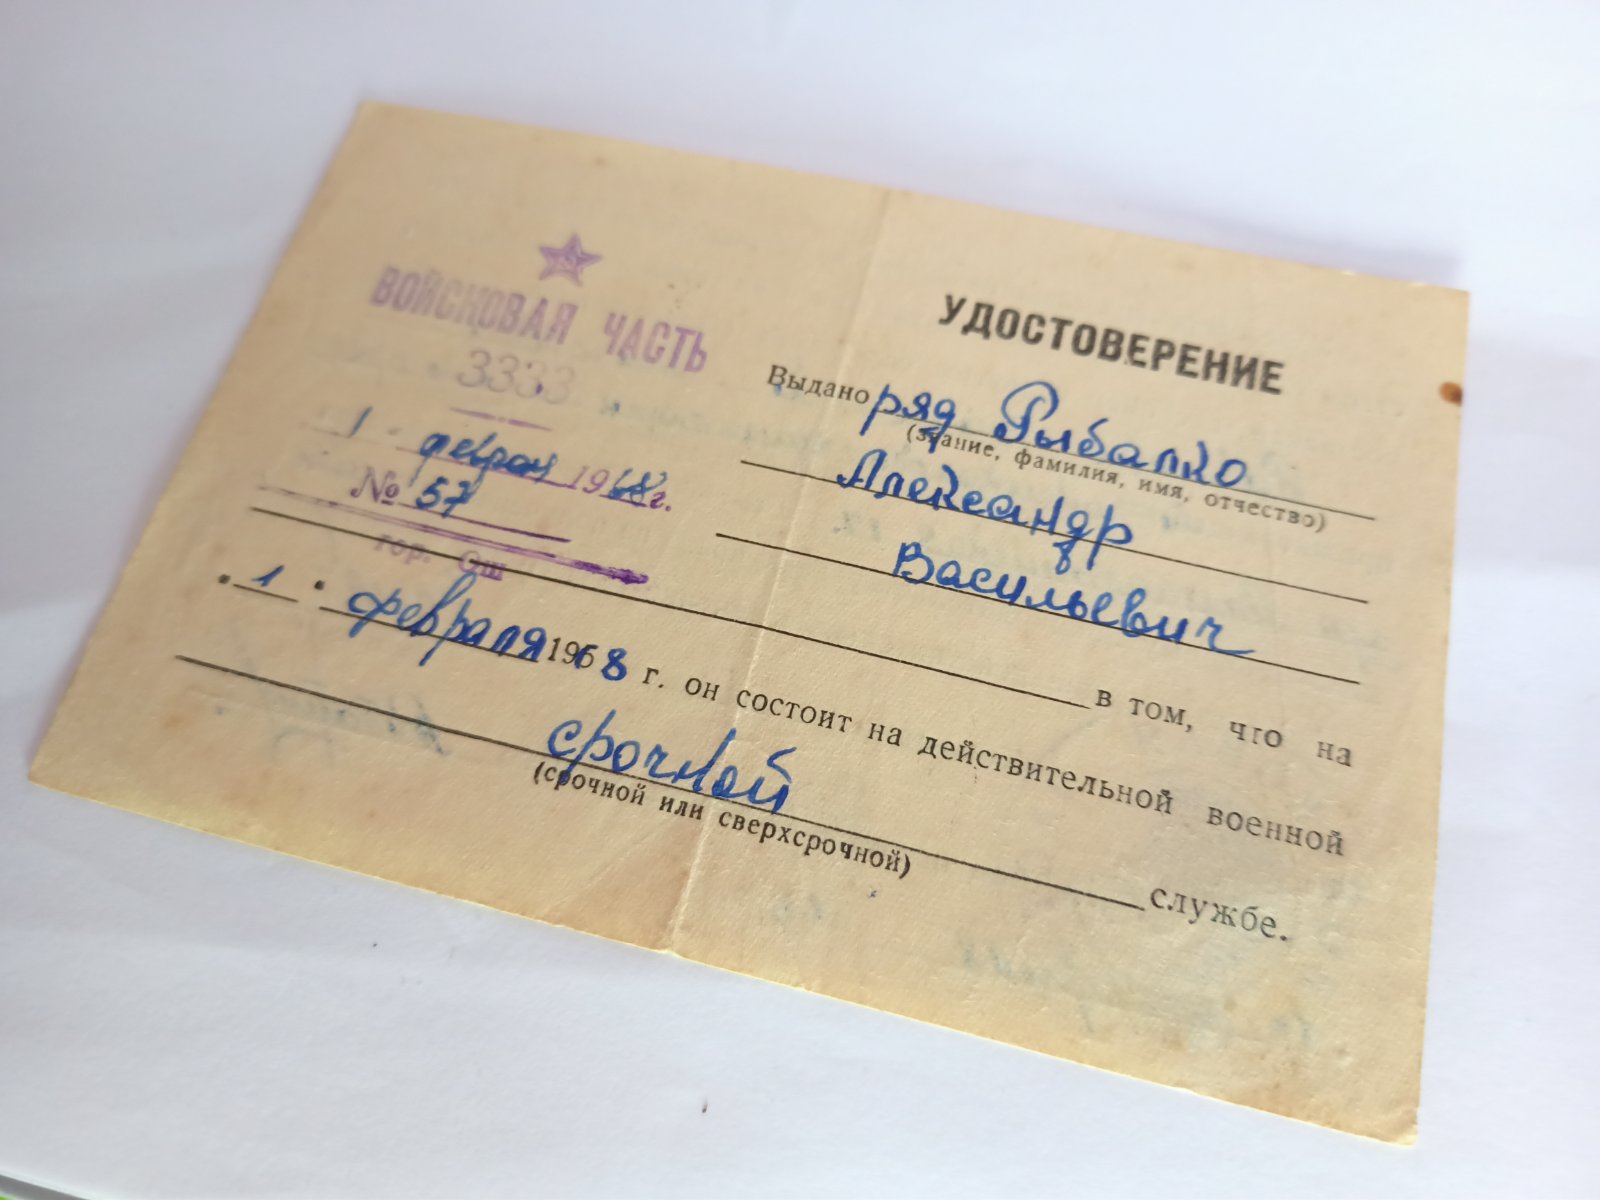 ВОЙСКОВАЯ ЧАСТЬ
3333
1 феврал 1968 г.
№ 57
гор. Ош
УДОСТОВЕРЕНИЕ
Выдано ряд Рыбалко
(звание, фамилия, имя, отчество)
Александр
Васильевич
в том, что на
1 февраля 1968 г. он состоит на действительной военной
срочной службе.
(срочной или сверхсрочной)